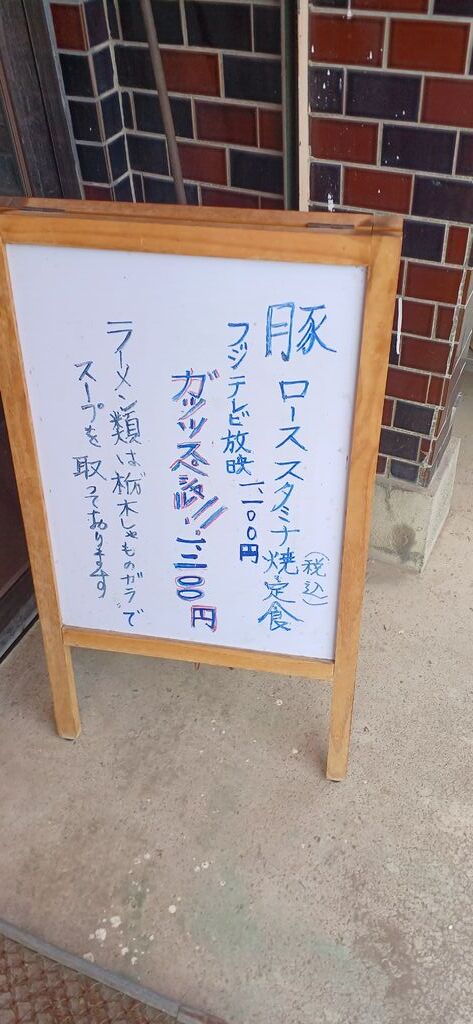 豚ローススタミナ焼定食
(税込)
フジテレビ放映 一、二〇〇円
ガッツスペシャル!! 一、三〇〇円
ラーメン類は栃木しゃものガラで
スープを取っております